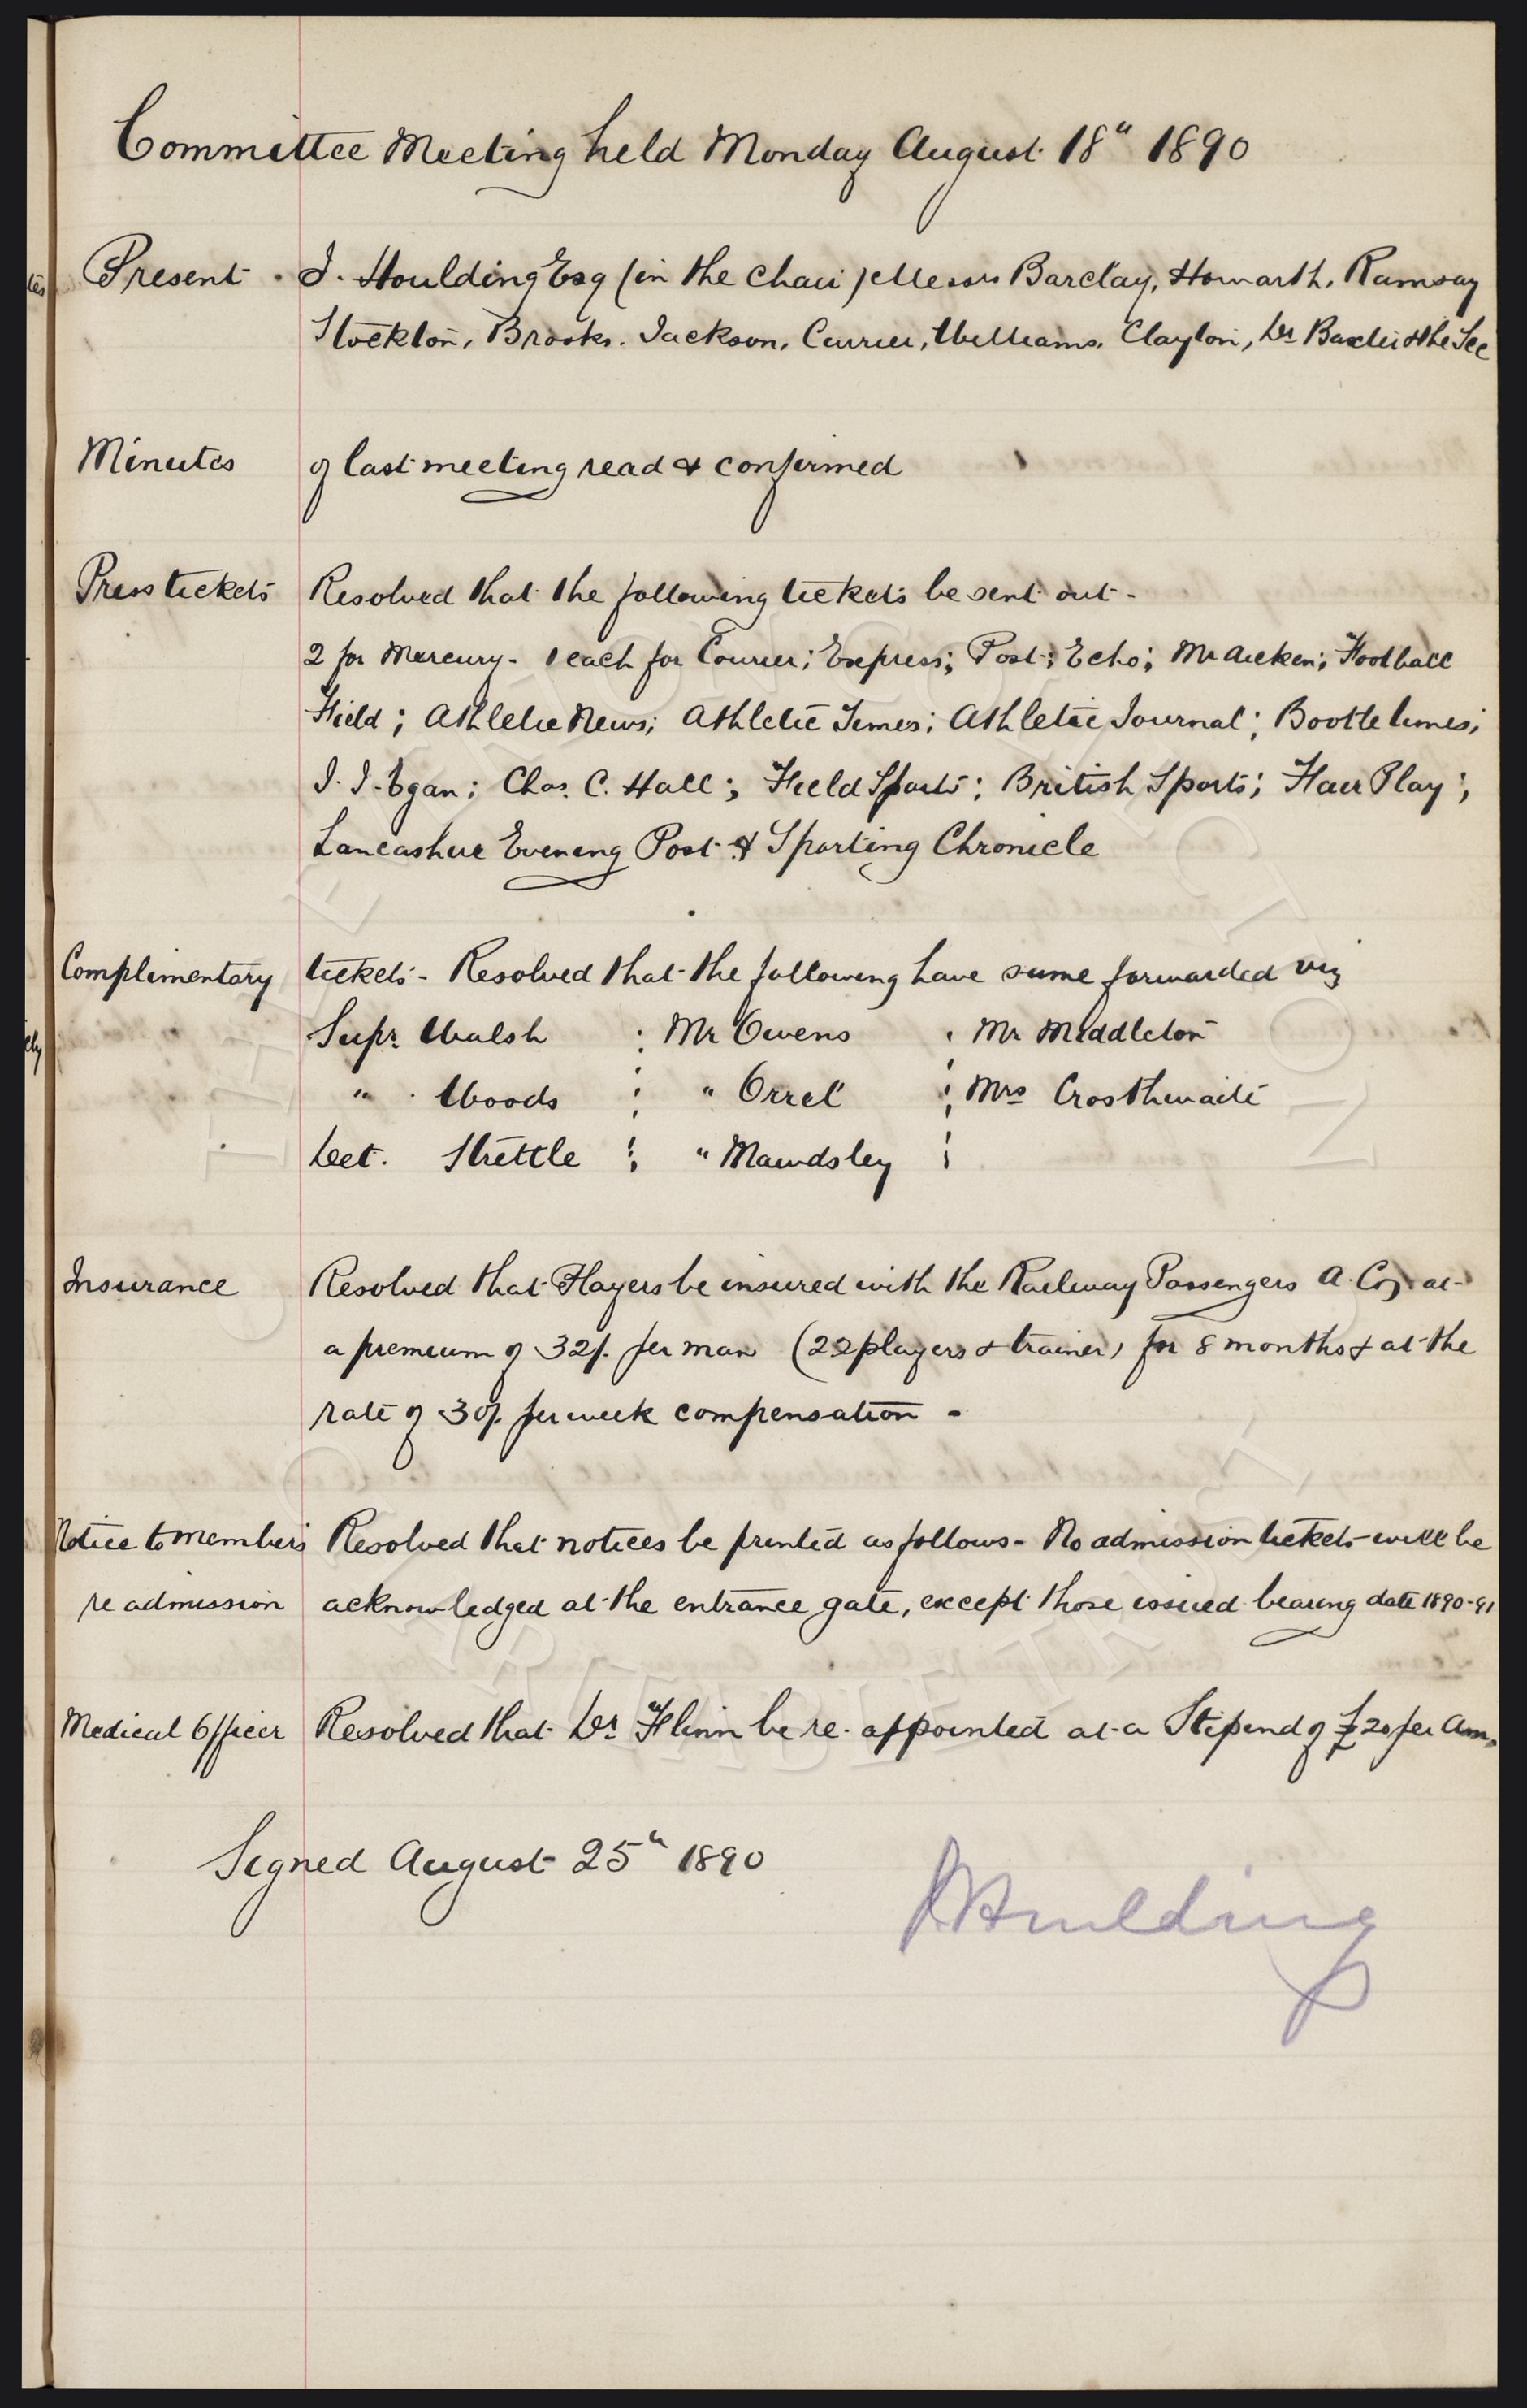 Committee Meeting held Monday August 18" 1890
Present. J. Houlding Esq (in the chair) Messrs Barclay, Howarth, Ramsay
Stockton, Brooks. Jackson, Currier, Williams, Clayton, Dr Baxter & the Sec
Minutes of last meeting read & confirmed
Press tickets Resolved that the following tickets be sent out-
2 for Mercury- 1 each for Courier; Express; Post; Echo; Mr Aicken; Football
Field; Athletic News; Athletic Times; Athletic Journal; Bootle times;
J. J. Egan; Chas. C. Hall; Field Sports; British Sports; Fair Play;
Lancashire Evening Post & Sporting Chronicle
Complimentary tickets- Resolved that the following have same forwarded viz
Supr. Walsh : Mr Owens : Mr Middleton
" Woods : " Orrel : Mrs Crosthwaite
Det. Strettle : " Mawdsley :
Insurance Resolved that Players be insured with the Railway Passengers A. Coy. at
a premium of 32/. per man (22 players & trainer) for 8 months & at the
rate of 30/. per week compensation -
Notice to members Resolved that notices be printed as follows- No admission tickets will be
re admission acknowledged at the entrance gate, except those issued bearing date 1890-91
Medical Officer Resolved that Dr Flinn be re-appointed at a Stipend of £20 per Ann.
Signed August 25" 1890
J Houlding